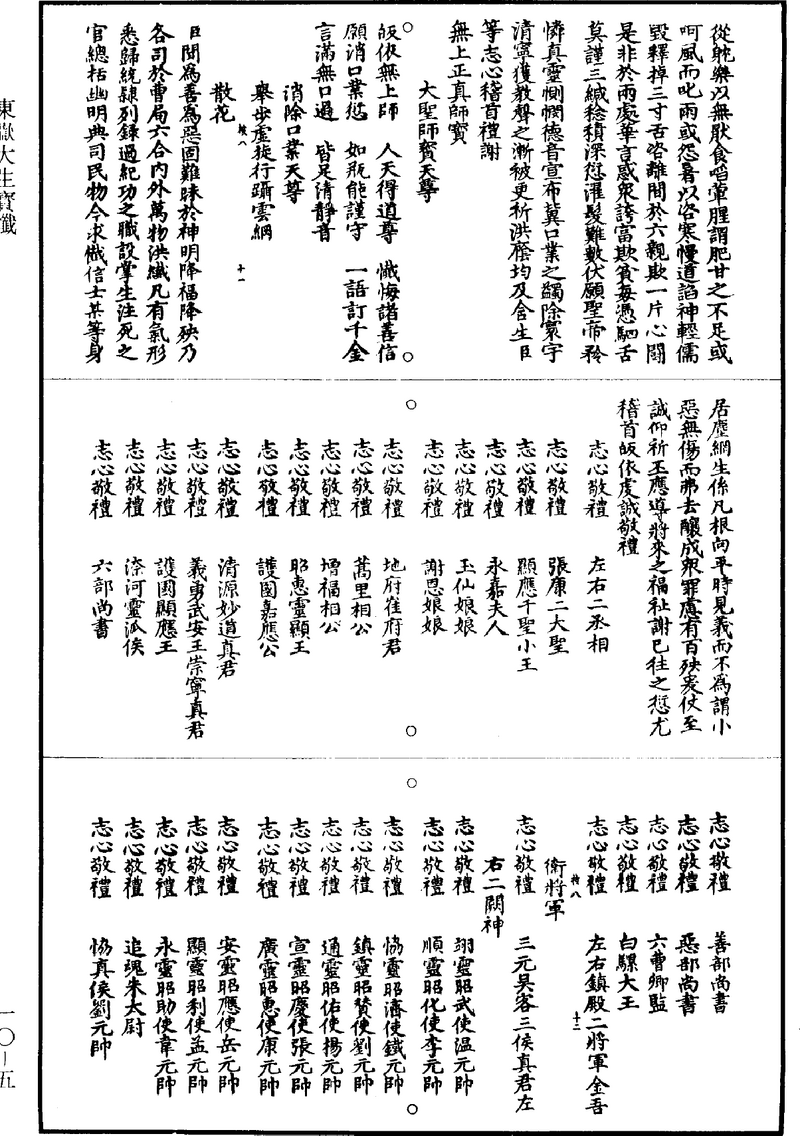 從耽樂以無猒食啗葷腥謂肥甘之不足或
呵風而叱雨或怨暑以咨寒慢道諂神輕儒
毀釋掉三寸舌咨離間於六親欺一片心鬬
是非於兩處華言惑衆誇富欺貧每憑駟舌
莫謹三緘稔積深愆濯髮難數伏願聖帝矜
憐真靈惻憫德音宣布冀口業之蠲除寰宇
清寧獲教聲之漸被更祈洪麻均及含生臣
等志心稽首禮謝
無上正真師寳
大聖師寳天尊
皈依無上師 人天得道尊 懺悔諸善信
願消口業愆 如瓶能謹守 一語訂千金
言滿無口過 皆足清靜音
消除口業天尊
舉步虛旋行躡雲綱
散花
臣聞爲善爲惡固難昧於神明降福降殃乃
各司於曹局六合内外萬物洪纖凡有氣形
悉歸統隷列録過紀功之職設掌生注死之
官總括幽明典司民物今求懺信士某等身
居塵網生係凡根向平時見義而不爲謂小
惡無傷而弗去釀成衆罪慮有百殃爰仗至
誠仰祈玉應導將來之福祉謝已往之愆尤
稽首皈依虔誠敬禮
志心敬禮 左右二丞相
志心敬禮 張康二大聖
志心敬禮 顯應千聖小王
志心敬禮 永嘉夫人
志心敬禮 玉仙娘娘
志心敬禮 謝恩娘娘
志心敬禮 地府崔府君
志心敬禮 蒿里相公
志心敬禮 增福相公
志心敬禮 昭惠靈顯王
志心敬禮 護國嘉應公
志心敬禮 清源妙道真君
志心敬禮 義勇武安王崇寧真君
志心敬禮 護國顯應王
志心敬禮 漆河靈派侯
志心敬禮 六部尚書
志心敬禮 善部尚書
志心敬禮 惡部尚書
志心敬禮 六曹卿監
志心敬禮 白騾大王
志心敬禮 左右鎮殿二將軍金吾
衛將軍
志心敬禮 三元吳客三侯真君左
右二闕神
志心敬禮 翊靈昭武使溫元帥
志心敬禮 順靈昭化使李元帥
志心敬禮 協靈昭濟使鐵元帥
志心敬禮 鎮靈昭贊使劉元帥
志心敬禮 通靈昭佑使楊元帥
志心敬禮 宣靈昭慶使張元帥
志心敬禮 廣靈昭惠使康元帥
志心敬禮 安靈昭應使岳元帥
志心敬禮 顯靈昭利使孟元帥
志心敬禮 永靈昭助使韋元帥
志心敬禮 追魂朱太尉
志心敬禮 協真侯劉元帥
東嶽大生寶懺
一〇－五